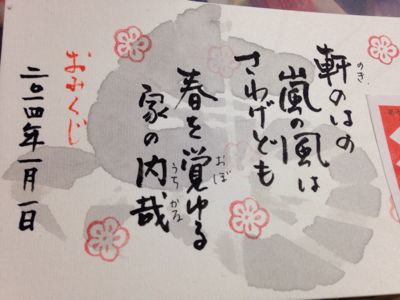 軒のはの
嵐の風は
さわげども
春を覚ゆる
家の内哉
おみくじ
二〇一四年一月一日